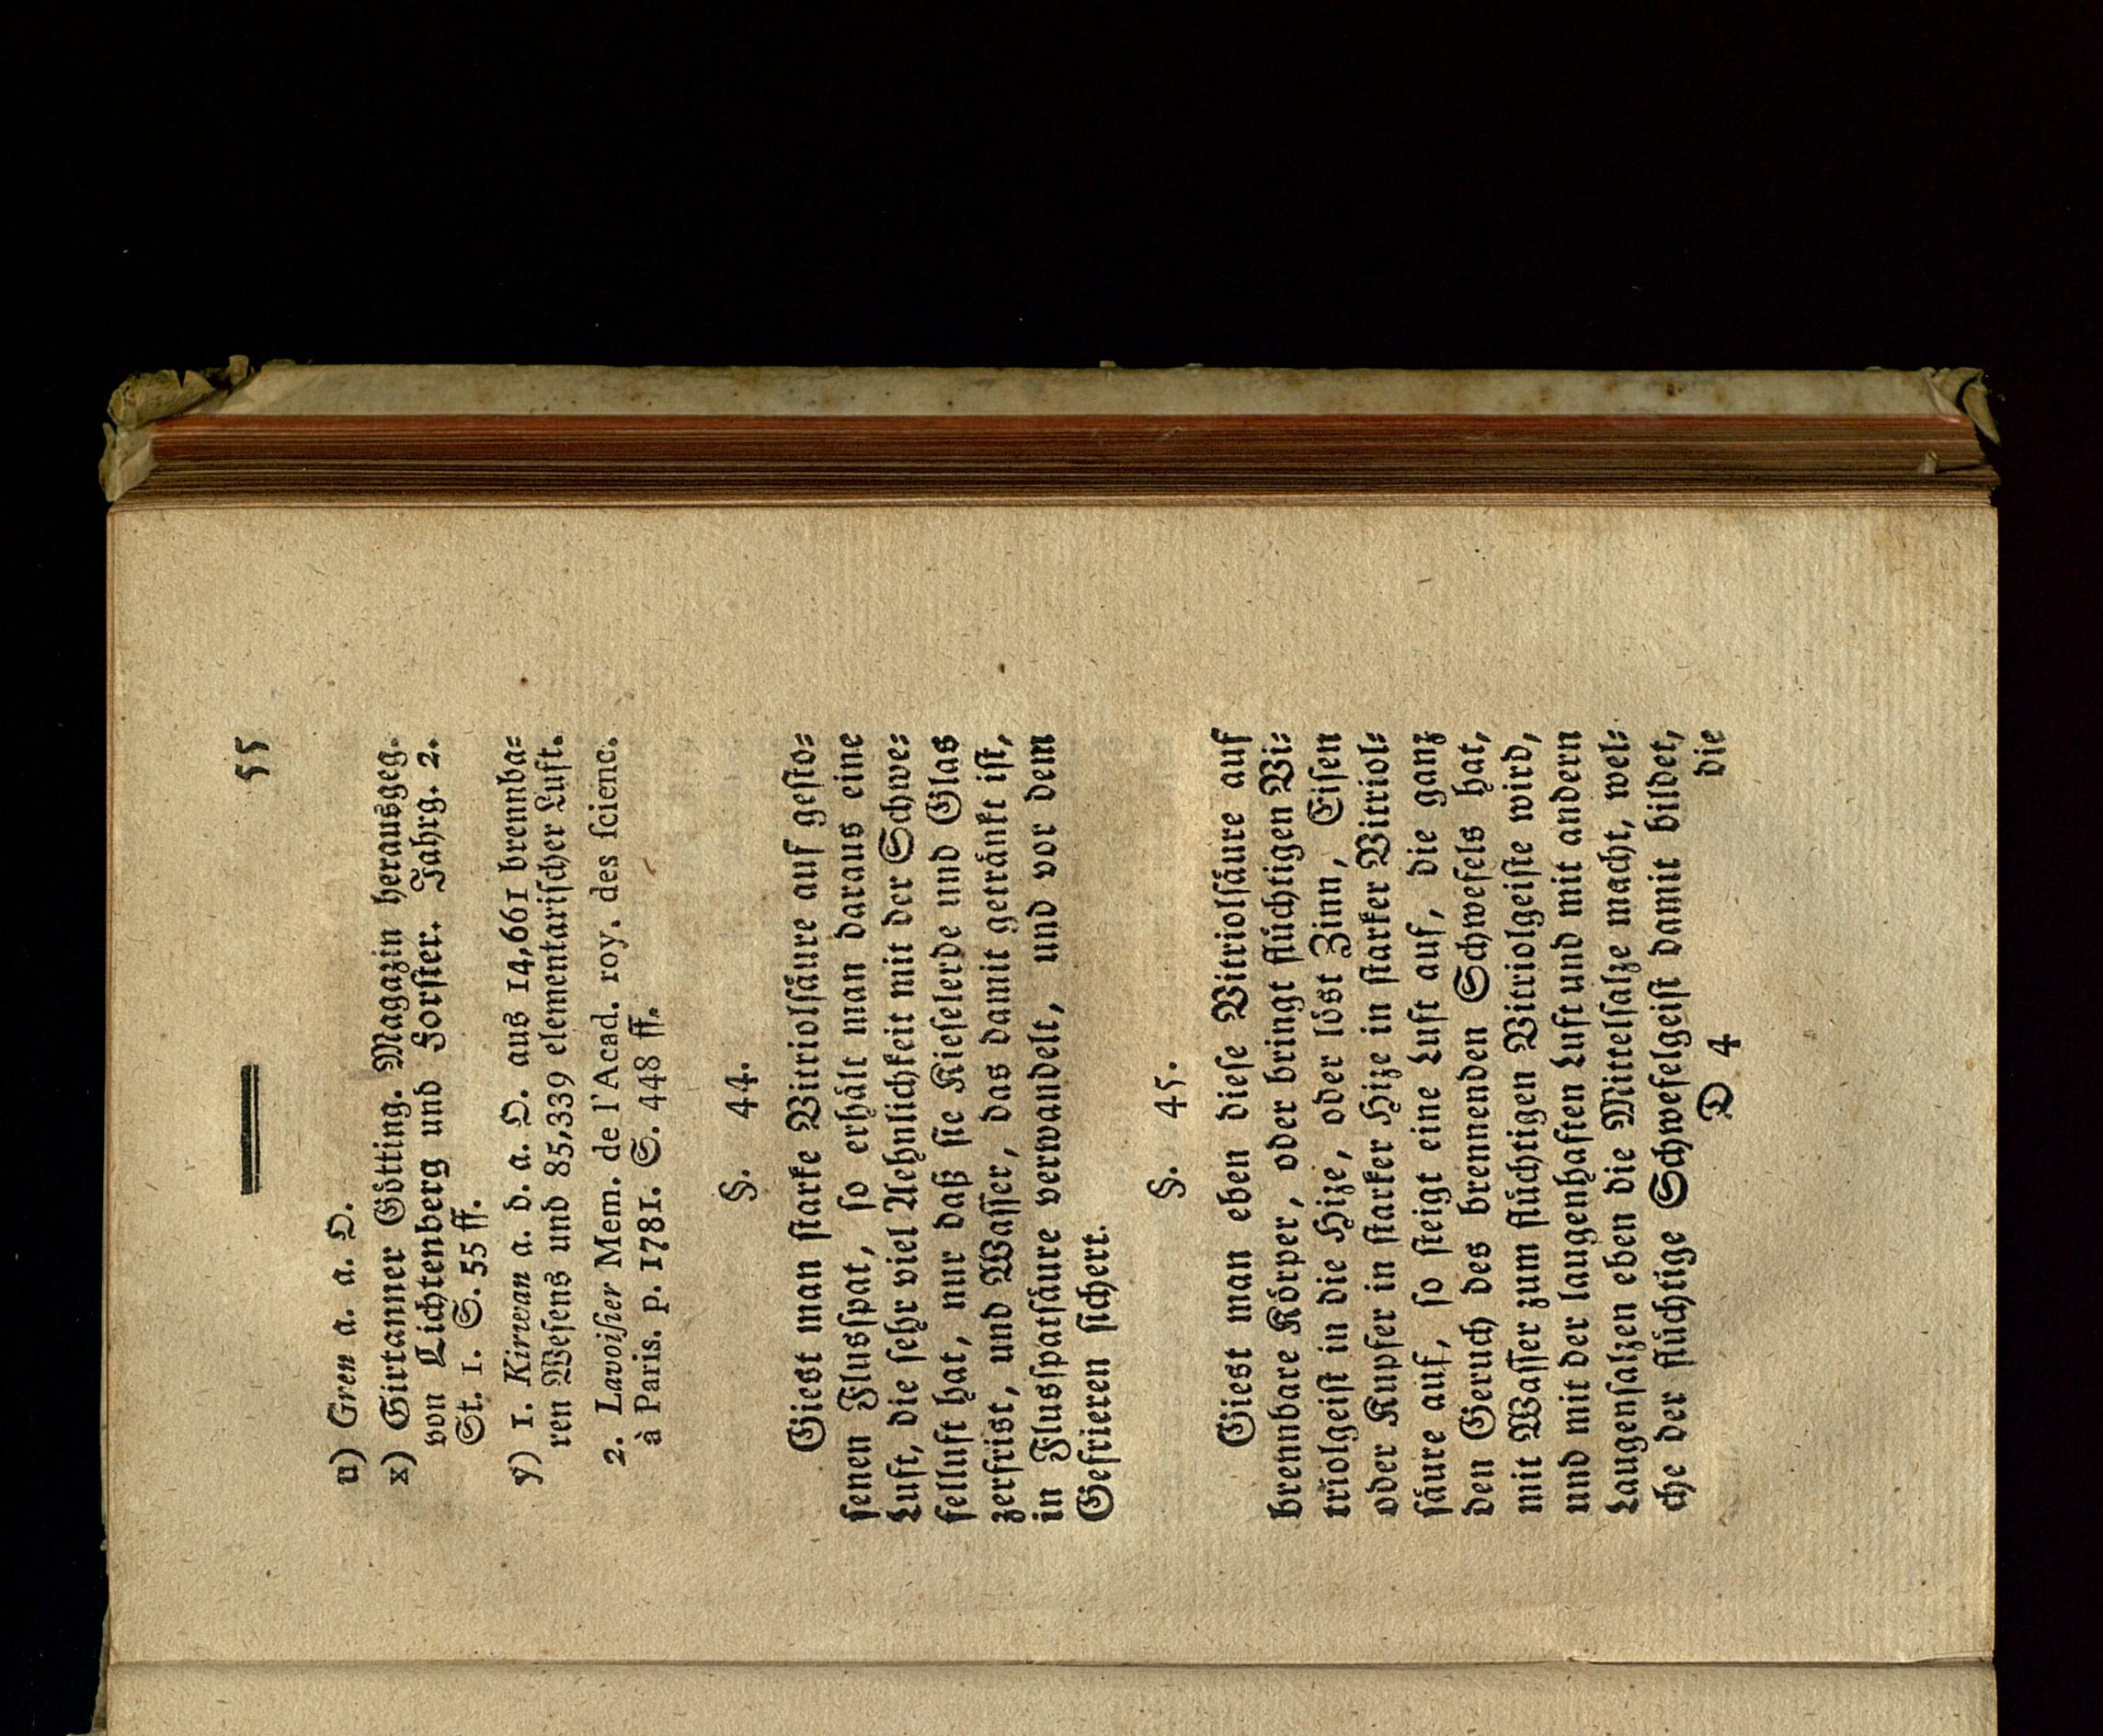 55
u) Gren a. a. O.
x) Girtanner Götting. Magazin herausgeg.
von Lichtenberg und Forster. Jahrg. 2.
St. 1. S. 55 ff.
y) 1. Kirwan a. d. a. O. aus 14,661 brennba-
ren Wesens und 85,339 elementarischer Luft.
2. Lavoiſier Mem. de l'Acad. roy. des ſcienc.
à Paris. p. 1781. S. 448 ff.
§. 44.
Giest man ſtarke Vitriolſäure auf geſto-
ſenen Flusſpat, ſo erhält man daraus eine
Luft, die ſehr viel Aehnlichkeit mit der Schwe-
felluft hat, nur daß ſie Kieſelerde und Glas
zerfrist, und Waſſer, das damit getränkt iſt,
in Flusſpatſäure verwandelt, und vor dem
Gefrieren ſichert.
§. 45.
Giest man eben dieſe Vitriolſäure auf
brennbare Körper, oder bringt flüchtigen Vi-
triolgeiſt in die Hize, oder löst Zinn, Eiſen
oder Kupfer in ſtarker Hize in ſtarker Vitriol-
ſäure auf, ſo ſteigt eine Luft auf, die ganz
den Geruch des brennenden Schwefels hat,
mit Waſſer zum flüchtigen Vitriolgeiſte wird,
und mit der laugenhaften Luft und mit andern
Laugenſalzen eben die Mittelſalze macht, wel-
che der flüchtige Schwefelgeiſt damit bildet,
D 4 die